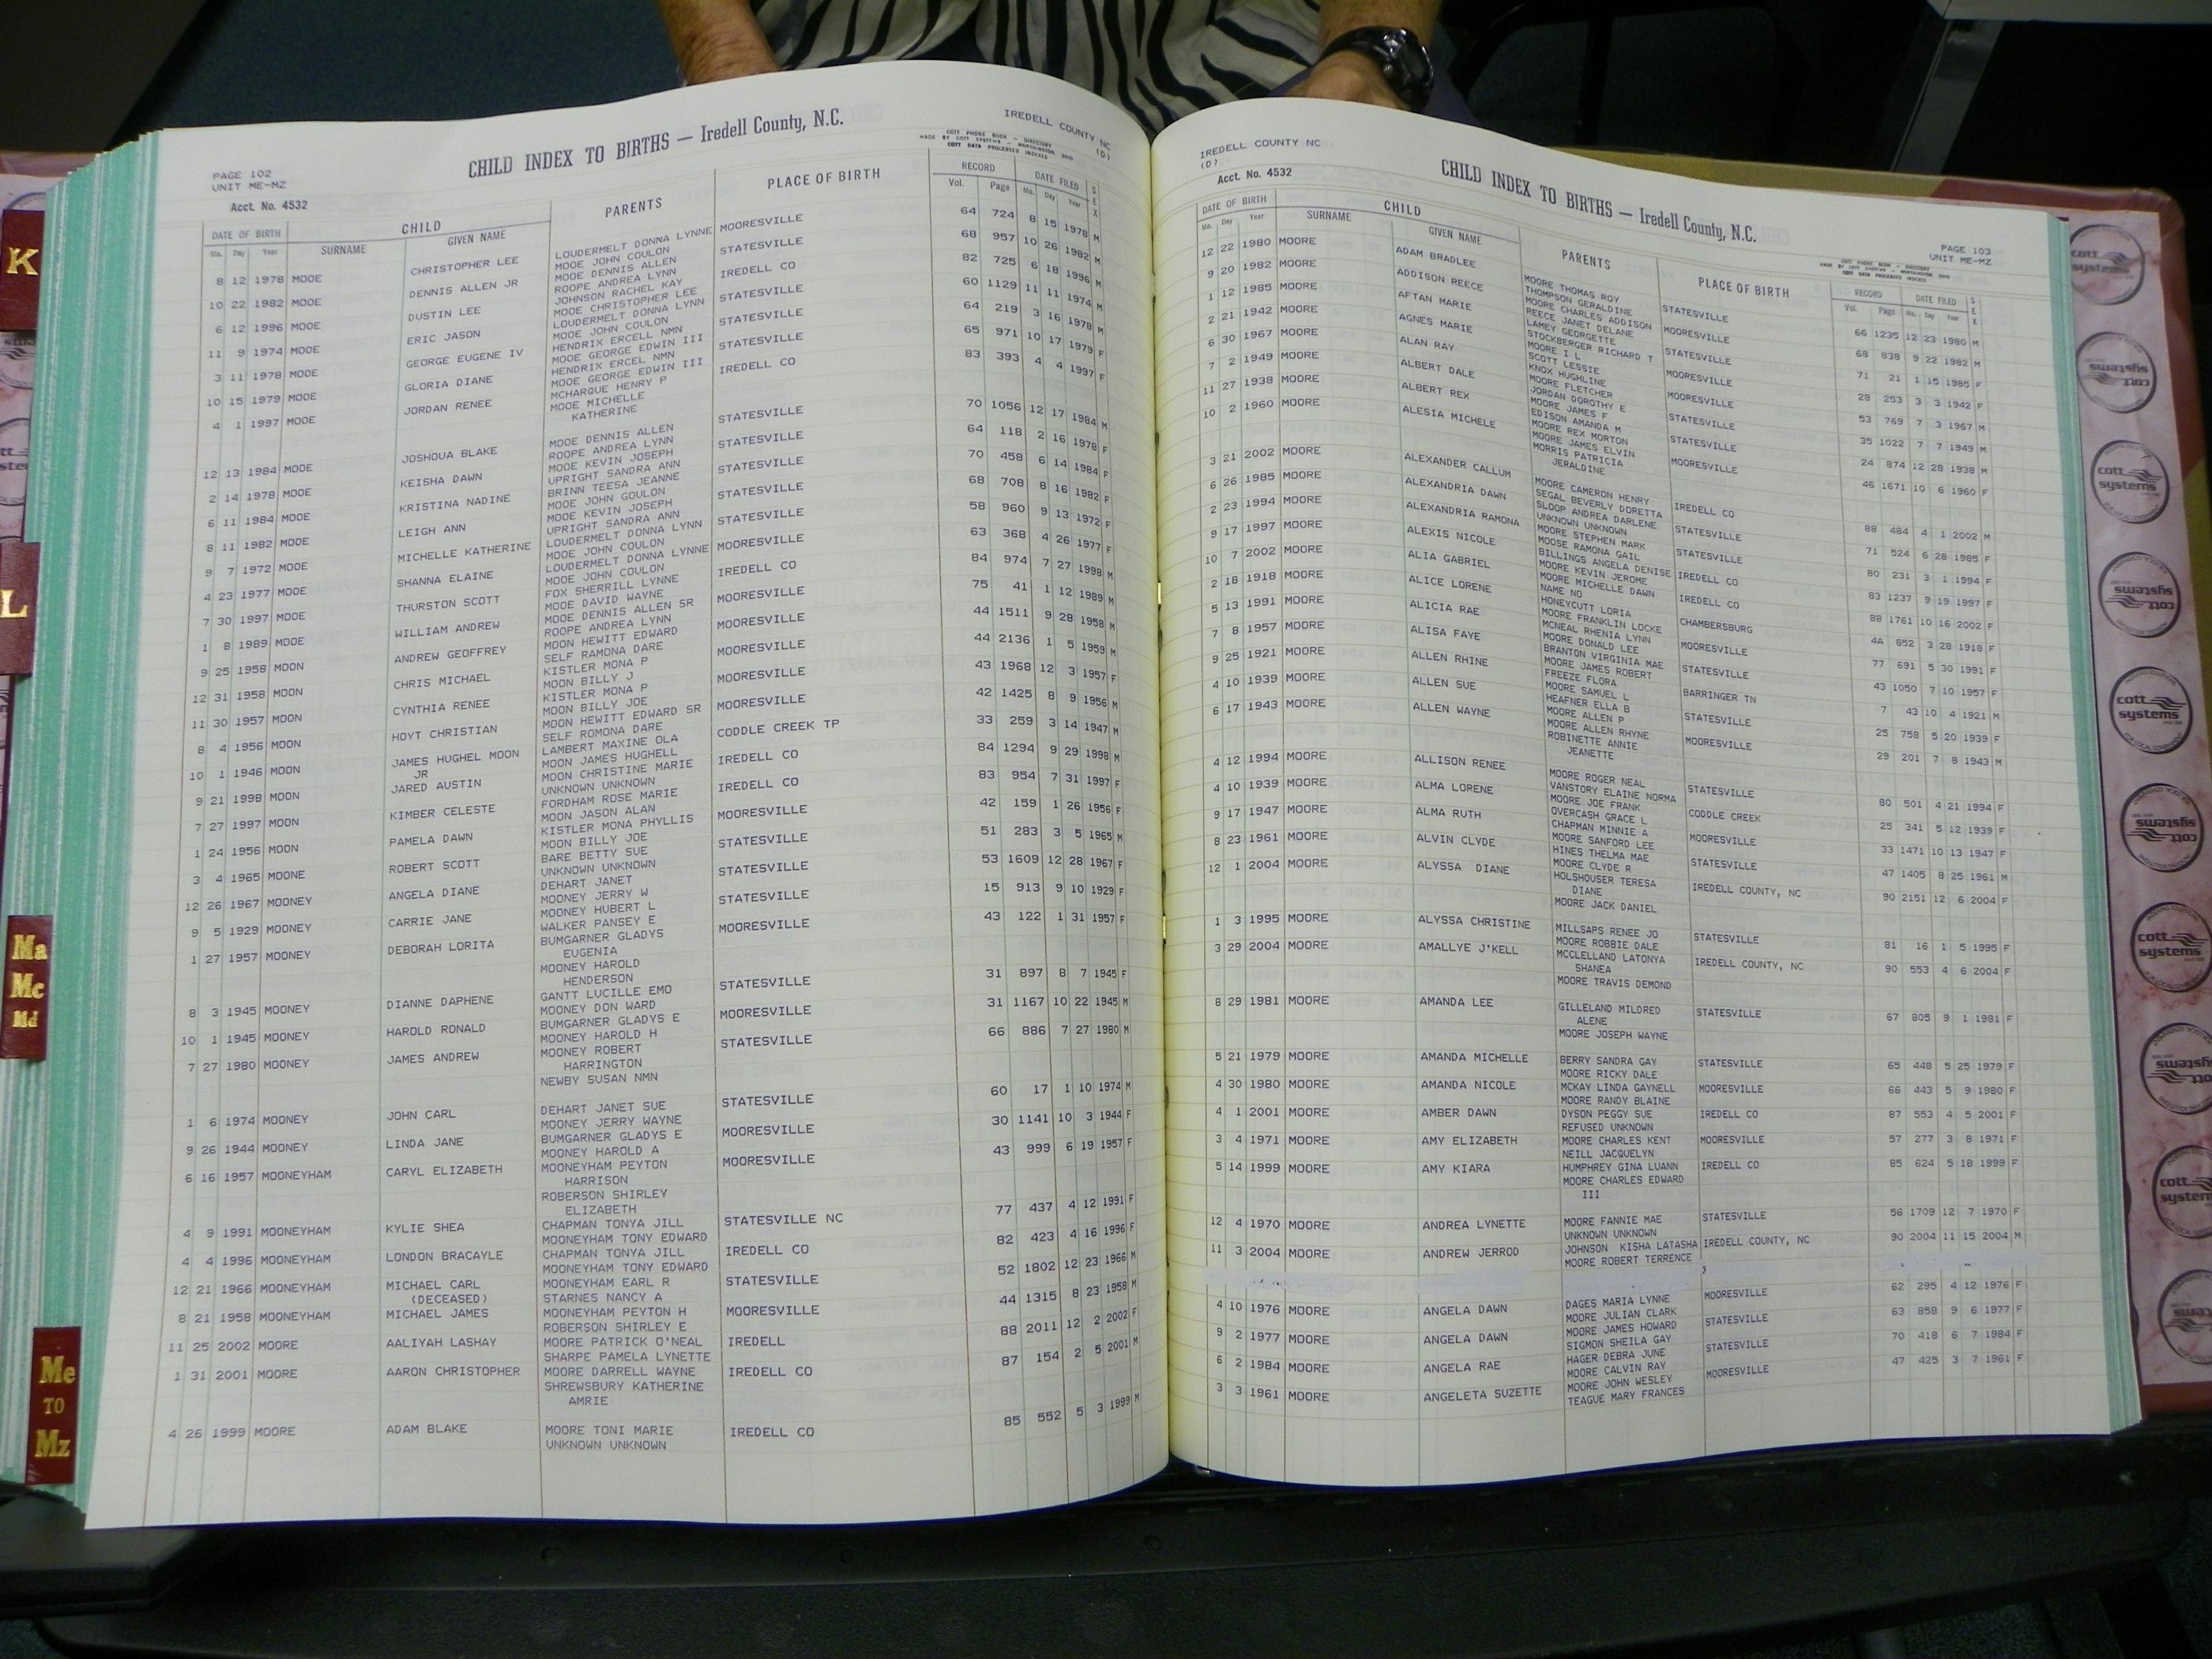 PAGE 102
UNIT ME-MZ
Acct. No. 4532
CHILD INDEX TO BIRTHS — Iredell County, N.C.
IREDELL COUNTY NC
(D)
COTT PHONE BOOK - DIRECTORY
MADE BY COTT SYSTEMS - WORTHINGTON, OHIO
COTT DATA PROCESSED INDEXES
DATE OF BIRTH CHILD PARENTS PLACE OF BIRTH RECORD DATE FILED SEX
Mo. Day Year SURNAME GIVEN NAME Vol. Page Mo. Day Year
8 12 1978 MOOE CHRISTOPHER LEE LOUDERMELT DONNA LYNNE MOORESVILLE 64 724 8 15 1978 M
MOOE JOHN COULON
10 22 1982 MOOE DENNIS ALLEN JR MOOE DENNIS ALLEN STATESVILLE 68 957 10 26 1982 M
ROOPE ANDREA LYNN
6 12 1996 MOOE DUSTIN LEE JOHNSON RACHEL KAY IREDELL CO 82 725 6 18 1996 M
MOOE CHRISTOPHER LEE
11 9 1974 MOOE ERIC JASON LOUDERMELT DONNA LYNN STATESVILLE 60 1129 11 11 1974 M
MOOE JOHN COULON
3 11 1978 MOOE GEORGE EUGENE IV HENDRIX ERCELL NMN STATESVILLE 64 219 3 16 1978 M
MOOE GEORGE EDWIN III
10 15 1979 MOOE GLORIA DIANE HENDRIX ERCEL NMN STATESVILLE 65 971 10 17 1979 F
MOOE GEORGE EDWIN III
4 1 1997 MOOE JORDAN RENEE MCHARQUE HENRY P IREDELL CO 83 393 4 4 1997 F
MOOE MICHELLE
KATHERINE
12 13 1984 MOOE JOSHOUA BLAKE MOOE DENNIS ALLEN STATESVILLE 70 1056 12 17 1984 M
ROOPE ANDREA LYNN
2 14 1978 MOOE KEISHA DAWN MOOE KEVIN JOSEPH STATESVILLE 64 118 2 16 1978 F
UPRIGHT SANDRA ANN
6 11 1984 MOOE KRISTINA NADINE BRINN TEESA JEANNE STATESVILLE 70 458 6 14 1984 F
MOOE JOHN GOULON
8 11 1982 MOOE LEIGH ANN MOOE KEVIN JOSEPH STATESVILLE 68 708 8 16 1982 F
UPRIGHT SANDRA ANN
9 7 1972 MOOE MICHELLE KATHERINE LOUDERMELT DONNA LYNN STATESVILLE 58 960 9 13 1972 F
MOOE JOHN COULON
4 23 1977 MOOE SHANNA ELAINE LOUDERMELT DONNA LYNNE MOORESVILLE 63 368 4 26 1977 F
MOOE JOHN COULON
7 30 1997 MOOE THURSTON SCOTT FOX SHERRILL LYNNE IREDELL CO 84 974 7 27 1998 M
MOOE DAVID WAYNE
1 8 1989 MOOE WILLIAM ANDREW MOOE DENNIS ALLEN SR MOORESVILLE 75 41 1 12 1989 M
ROOPE ANDREA LYNN
9 25 1958 MOON ANDREW GEOFFREY MOON HEWITT EDWARD MOORESVILLE 44 1511 9 28 1958 M
SELF RAMONA DARE
12 31 1958 MOON CHRIS MICHAEL KISTLER MONA P MOORESVILLE 44 2136 1 5 1959 M
MOON BILLY J
11 30 1957 MOON CYNTHIA RENEE KISTLER MONA P MOORESVILLE 43 1968 12 3 1957 F
MOON BILLY JOE
8 4 1956 MOON HOYT CHRISTIAN MOON HEWITT EDWARD SR MOORESVILLE 42 1425 8 9 1956 M
SELF ROMONA DARE
10 1 1946 MOON JAMES HUGHEL MOON LAMBERT MAXINE OLA CODDLE CREEK TP 33 259 3 14 1947 M
JR MOON JAMES HUGHELL
9 21 1998 MOON JARED AUSTIN MOON CHRISTINE MARIE IREDELL CO 84 1294 9 29 1998 M
UNKNOWN UNKNOWN
7 27 1997 MOON KIMBER CELESTE FORDHAM ROSE MARIE IREDELL CO 83 954 7 31 1997 F
MOON JASON ALAN
1 24 1956 MOON PAMELA DAWN KISTLER MONA PHYLLIS MOORESVILLE 42 159 1 26 1956 F
MOON BILLY JOE
3 4 1965 MOONE ROBERT SCOTT BARE BETTY SUE STATESVILLE 51 283 3 5 1965 M
UNKNOWN UNKNOWN
12 26 1967 MOONEY ANGELA DIANE DEHART JANET STATESVILLE 53 1609 12 28 1967 F
MOONEY JERRY W
9 5 1929 MOONEY CARRIE JANE MOONEY HUBERT L STATESVILLE 15 913 9 10 1929 F
WALKER PANSEY E
1 27 1957 MOONEY DEBORAH LORITA BUMGARNER GLADYS MOORESVILLE 43 122 1 31 1957 F
EUGENIA
MOONEY HAROLD
HENDERSON
8 3 1945 MOONEY DIANNE DAPHENE GANTT LUCILLE EMO STATESVILLE 31 897 8 7 1945 F
MOONEY DON WARD
10 1 1945 MOONEY HAROLD RONALD BUMGARNER GLADYS E MOORESVILLE 31 1167 10 22 1945 M
MOONEY HAROLD H
7 27 1980 MOONEY JAMES ANDREW MOONEY ROBERT STATESVILLE 66 886 7 27 1980 M
HARRINGTON
NEWBY SUSAN NMN
1 6 1974 MOONEY JOHN CARL DEHART JANET SUE STATESVILLE 60 17 1 10 1974 M
MOONEY JERRY WAYNE
9 26 1944 MOONEY LINDA JANE BUMGARNER GLADYS E MOORESVILLE 30 1141 10 3 1944 F
MOONEY HAROLD A
6 16 1957 MOONEYHAM CARYL ELIZABETH MOONEYHAM PEYTON MOORESVILLE 43 999 6 19 1957 F
HARRISON
ROBERSON SHIRLEY
ELIZABETH
4 9 1991 MOONEYHAM KYLIE SHEA CHAPMAN TONYA JILL STATESVILLE NC 77 437 4 12 1991 F
MOONEYHAM TONY EDWARD
4 4 1996 MOONEYHAM LONDON BRACAYLE CHAPMAN TONYA JILL IREDELL CO 82 423 4 16 1996 F
MOONEYHAM TONY EDWARD
12 21 1966 MOONEYHAM MICHAEL CARL MOONEYHAM EARL R STATESVILLE 52 1802 12 23 1966 M
(DECEASED) STARNES NANCY A
8 21 1958 MOONEYHAM MICHAEL JAMES MOONEYHAM PEYTON H MOORESVILLE 44 1315 8 23 1958 M
ROBERSON SHIRLEY E
11 25 2002 MOORE AALIYAH LASHAY MOORE PATRICK O'NEAL IREDELL 88 2011 12 2 2002 F
SHARPE PAMELA LYNETTE
1 31 2001 MOORE AARON CHRISTOPHER MOORE DARRELL WAYNE IREDELL CO 87 154 2 5 2001 M
SHREWSBURY KATHERINE
AMRIE
4 26 1999 MOORE ADAM BLAKE MOORE TONI MARIE IREDELL CO 85 552 5 3 1999 M
UNKNOWN UNKNOWN
IREDELL COUNTY NC
(D)
Acct. No. 4532
CHILD INDEX TO BIRTHS — Iredell County, N.C.
PAGE 103
UNIT ME-MZ
COTT PHONE BOOK - DIRECTORY
MADE BY COTT SYSTEMS - WORTHINGTON, OHIO
COTT DATA PROCESSED INDEXES
DATE OF BIRTH CHILD PARENTS PLACE OF BIRTH RECORD DATE FILED SEX
Mo. Day Year SURNAME GIVEN NAME Vol. Page Mo. Day Year
12 22 1980 MOORE ADAM BRADLEE MOORE THOMAS ROY STATESVILLE 66 1235 12 23 1980 M
THOMPSON GERALDINE
9 20 1982 MOORE ADDISON REECE MOORE CHARLES ADDISON MOORESVILLE 68 838 9 22 1982 M
REECE JANET DELANE
1 12 1985 MOORE AFTAN MARIE LAMEY GEORGETTE STATESVILLE 71 21 1 15 1985 F
STOCKBERGER RICHARD T
2 21 1942 MOORE AGNES MARIE MOORE I L MOORESVILLE 28 253 3 3 1942 F
SCOTT LESSIE
6 30 1967 MOORE ALAN RAY KNOX HUGHLINE MOORESVILLE 53 769 7 3 1967 M
MOORE FLETCHER
7 2 1949 MOORE ALBERT DALE JORDAN DOROTHY E STATESVILLE 35 1022 7 7 1949 M
MOORE JAMES F
11 27 1938 MOORE ALBERT REX EDISON AMANDA M STATESVILLE 24 874 12 28 1938 M
MOORE REX MORTON
10 2 1960 MOORE ALESIA MICHELE MOORE JAMES ELVIN MOORESVILLE 46 1671 10 6 1960 F
MORRIS PATRICIA
JERALDINE
3 21 2002 MOORE ALEXANDER CALLUM MOORE CAMERON HENRY IREDELL CO 88 484 4 1 2002 M
SEGAL BEVERLY DORETTA
6 26 1985 MOORE ALEXANDRIA DAWN SLOOP ANDREA DARLENE STATESVILLE 71 524 6 28 1985 F
UNKNOWN UNKNOWN
2 23 1994 MOORE ALEXANDRIA RAMONA MOORE STEPHEN MARK STATESVILLE 80 231 3 1 1994 F
MOOSE RAMONA GAIL
9 17 1997 MOORE ALEXIS NICOLE BILLINGS ANGELA DENISE IREDELL CO 83 1237 9 19 1997 F
MOORE KEVIN JEROME
10 7 2002 MOORE ALIA GABRIEL MOORE MICHELLE DAWN IREDELL CO 88 1761 10 16 2002 F
NAME NO
2 18 1918 MOORE ALICE LORENE HONEYCUTT LORIA CHAMBERSBURG 4A 852 3 28 1918 F
MOORE FRANKLIN LOCKE
5 13 1991 MOORE ALICIA RAE MCNEAL RHENIA LYNN MOORESVILLE 77 691 5 30 1991 F
MOORE DONALD LEE
7 8 1957 MOORE ALISA FAYE BRANTON VIRGINIA MAE STATESVILLE 43 1050 7 10 1957 F
MOORE JAMES ROBERT
9 25 1921 MOORE ALLEN RHINE FREEZE FLORA BARRINGER TN 7 43 10 4 1921 M
MOORE SAMUEL L
4 10 1939 MOORE ALLEN SUE HEAFNER ELLA B STATESVILLE 25 758 5 20 1939 F
MOORE ALLEN P
6 17 1943 MOORE ALLEN WAYNE MOORE ALLEN RHYNE MOORESVILLE 29 201 7 8 1943 M
ROBINETTE ANNIE
JEANETTE
4 12 1994 MOORE ALLISON RENEE MOORE ROGER NEAL STATESVILLE 80 501 4 21 1994 F
VANSTORY ELAINE NORMA
4 10 1939 MOORE ALMA LORENE MOORE JOE FRANK CODDLE CREEK 25 341 5 12 1939 F
OVERCASH GRACE L
9 17 1947 MOORE ALMA RUTH CHAPMAN MINNIE A MOORESVILLE 33 1471 10 13 1947 F
MOORE SANFORD LEE
8 23 1961 MOORE ALVIN CLYDE HINES THELMA MAE STATESVILLE 47 1405 8 25 1961 M
MOORE CLYDE R
12 1 2004 MOORE ALYSSA DIANE HOLSHOUSER TERESA IREDELL COUNTY, NC 90 2151 12 6 2004 F
DIANE
MOORE JACK DANIEL
1 3 1995 MOORE ALYSSA CHRISTINE MILLSAPS RENEE JO STATESVILLE 81 16 1 5 1995 F
MOORE ROBBIE DALE
3 29 2004 MOORE AMALLYE J'KELL MCCLELLAND LATONYA IREDELL COUNTY, NC 90 553 4 6 2004 F
SHANEA
MOORE TRAVIS DEMOND
8 29 1981 MOORE AMANDA LEE GILLELAND MILDRED STATESVILLE 67 805 9 1 1981 F
ALENE
MOORE JOSEPH WAYNE
5 21 1979 MOORE AMANDA MICHELLE BERRY SANDRA GAY STATESVILLE 65 448 5 25 1979 F
MOORE RICKY DALE
4 30 1980 MOORE AMANDA NICOLE MCKAY LINDA GAYNELL MOORESVILLE 66 443 5 9 1980 F
MOORE RANDY BLAINE
4 1 2001 MOORE AMBER DAWN DYSON PEGGY SUE IREDELL CO 87 553 4 5 2001 F
REFUSED UNKNOWN
3 4 1971 MOORE AMY ELIZABETH MOORE CHARLES KENT MOORESVILLE 57 277 3 8 1971 F
NEILL JACQUELYN
5 14 1999 MOORE AMY KIARA HUMPHREY GINA LUANN IREDELL CO 85 624 5 18 1999 F
MOORE CHARLES EDWARD
III
12 4 1970 MOORE ANDREA LYNETTE MOORE FANNIE MAE STATESVILLE 56 1709 12 7 1970 F
UNKNOWN UNKNOWN
11 3 2004 MOORE ANDREW JERROD JOHNSON KISHA LATASHA IREDELL COUNTY, NC 90 2004 11 15 2004 M
MOORE ROBERT TERRENCE
4 10 1976 MOORE ANGELA DAWN DAGES MARIA LYNNE MOORESVILLE 62 295 4 12 1976 F
MOORE JULIAN CLARK
9 2 1977 MOORE ANGELA DAWN MOORE JAMES HOWARD STATESVILLE 63 858 9 6 1977 F
SIGMON SHEILA GAY
6 2 1984 MOORE ANGELA RAE HAGER DEBRA JUNE STATESVILLE 70 418 6 7 1984 F
MOORE CALVIN RAY
3 3 1961 MOORE ANGELETA SUZETTE MOORE JOHN WESLEY MOORESVILLE 47 425 3 7 1961 F
TEAGUE MARY FRANCES
K
L
Ma
Mc
Md
Me
TO
Mz
cott systems
cott systems
cott systems
cott systems
cott systems
cott systems
cott systems
cott systems
cott systems